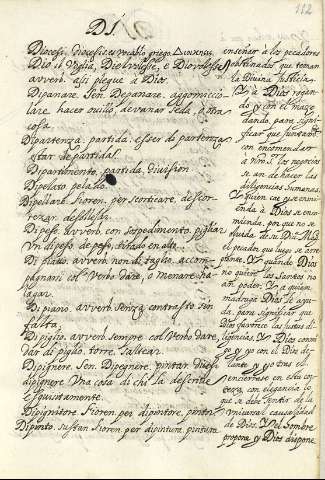 112
DI
Diocesi, diocesi es vocablo griego
Dio il voglia, Dio lo voglia, e Dio volesse
avverb. assi plegue à Dios
Dipanare, Sen. Depanare, aggomicciolare
hacer ovillo, devanar seda, ò otra
cosa
Dipartenza, partida. esser di partenza
estar de partida
Dipartimento, partida, division
Dipelato pelado
Dipellare, Fioren. per scorticare,
Di peso, avverb. con
Un di peso de peso,
Di piatto, avverb. non di taglio, accompagnani
col Verbo dare, o menare
Di piano, avverb. senza contrasto sin
falta
Di piglio, avverb. sempre col Verbo dare,
dar di piglio, torre, saltear
Dipignere, Sen. Dipegnere, pintar
dipignere una cosa di chi la descrive
esquisitamente
Dipignitore Fioren per dipintore, pintor
Dipinto, sustan Fioren per dipintura pintura
enseñar a los pecadores
obstinados que teman
la Divina Justicia
Y à Dios rogando
y con el mazo
dando, para significar
que juntando
con encomendar
à Dios los negocios
se an de hacer las
diligencias humanas.
Y quien cae y se enmienda
à Dios se encomienda,
por que no se
olvida de su Dios Mad.
el pecador que luego se arrepiente,
Y quando Dios
no quiere los santos no
an poder, Y a quien
madruga Dios le ayuda,
para significar que
Dios favorece las justas diligencias,
Y Dios
y yo con el Dio delante
y yo tras el
con elegancia lo
que se debe sentir de la
universal causalidad
de Dios, Y el hombre
propone, y Dios dispone